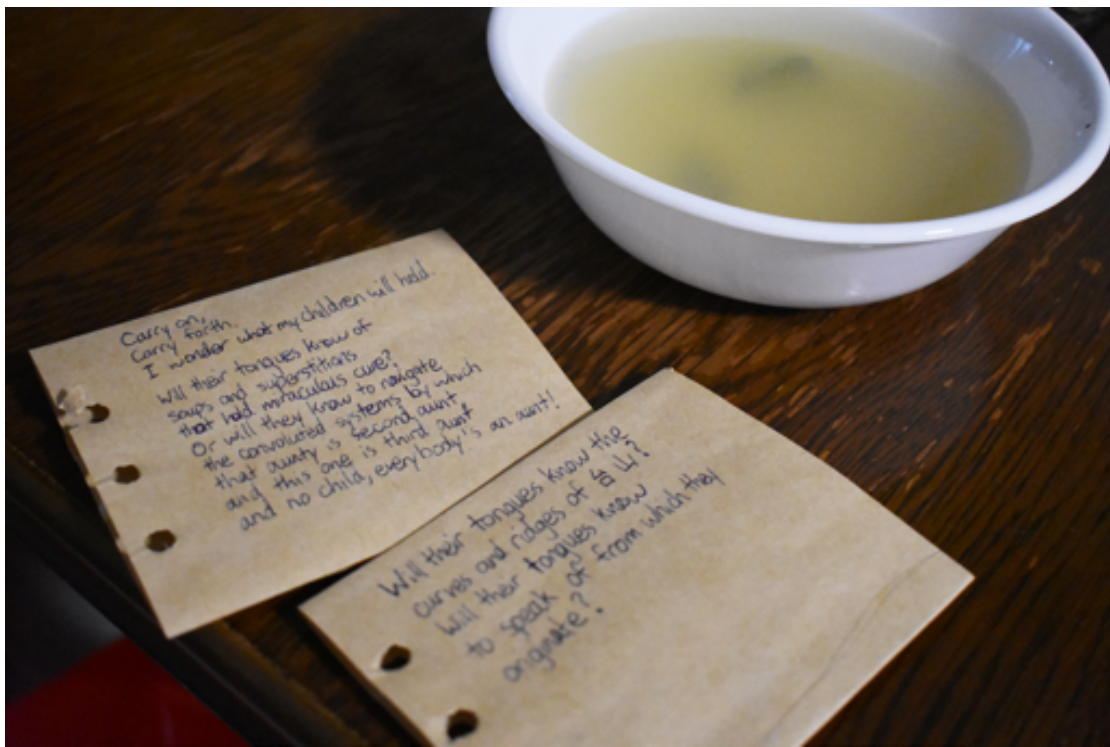 Carry on,
Carry forth.
I wonder what my children will hold.
Will their tongues know of
soups and superstitions
that hold miraculous cure?
Or will they know to navigate
the convoluted systems by which
that aunty is second aunt
and this one is third aunt
and no child, everybody's an aunt!
Will their tongues know the
curves and ridges of 台山?
Will their tongues know
to speak of from which they
originate?